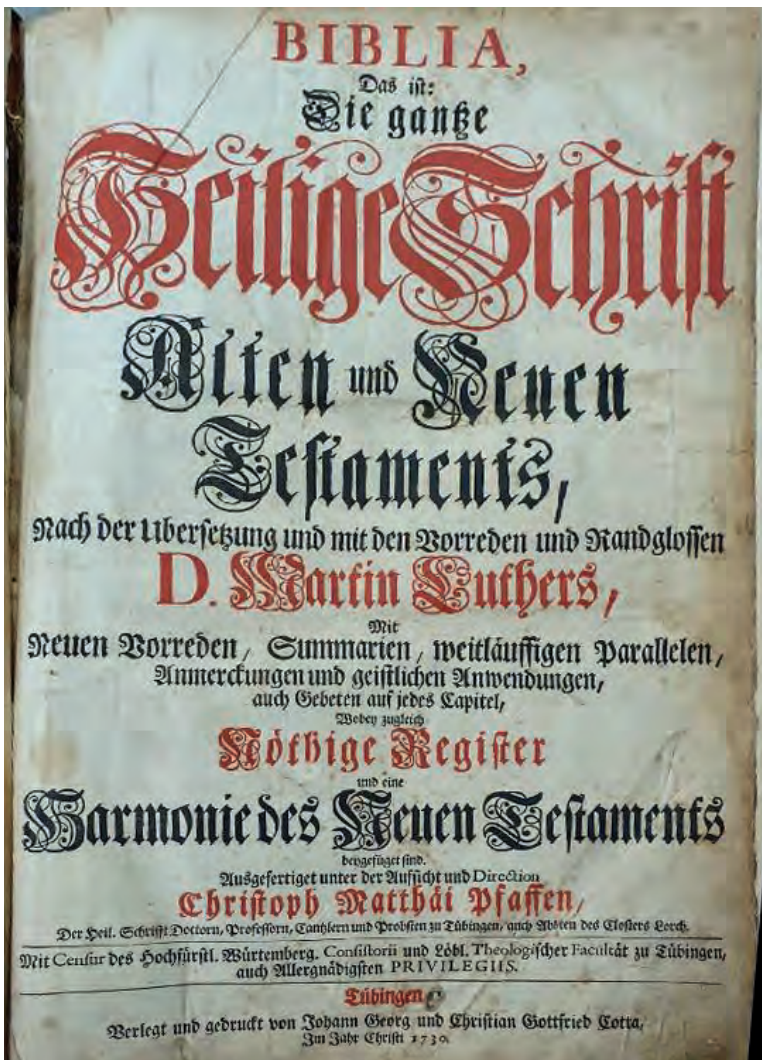 BIBLIA,
Das ist:
Die gantze
Heilige Schrift
Alten und Neuen
Testaments,
Nach der Ubersetzung und mit den Vorreden und Randglossen
D. Martin Luthers,
Mit
Neuen Vorreden, Summarien, weitläuffigen Parallelen,
Anmerckungen und geistlichen Anwendungen,
auch Gebeten auf jedes Capitel,
Wobey zugleich
Nöthige Register
und eine
Harmonie des Neuen Testaments
beygefüget sind.
Ausgefertiget unter der Aufsicht und Direction
Christoph Matthäi Pfaffen,
Der Heil. Schrifft Doctorn, Professorn, Cantzlern und Probsten zu Tübingen, auch Abbten des Closters Lorch.
Mit Censur des Hochfürstl. Würtemberg. Consistorii und Löbl. Theologischer Facultät zu Tübingen,
auch Allergnädigsten PRIVILEGIIS.
Tübingen
Verlegt und gedruckt von Johann Georg und Christian Gottfried Cotta,
Im Jahr Christi 1730.